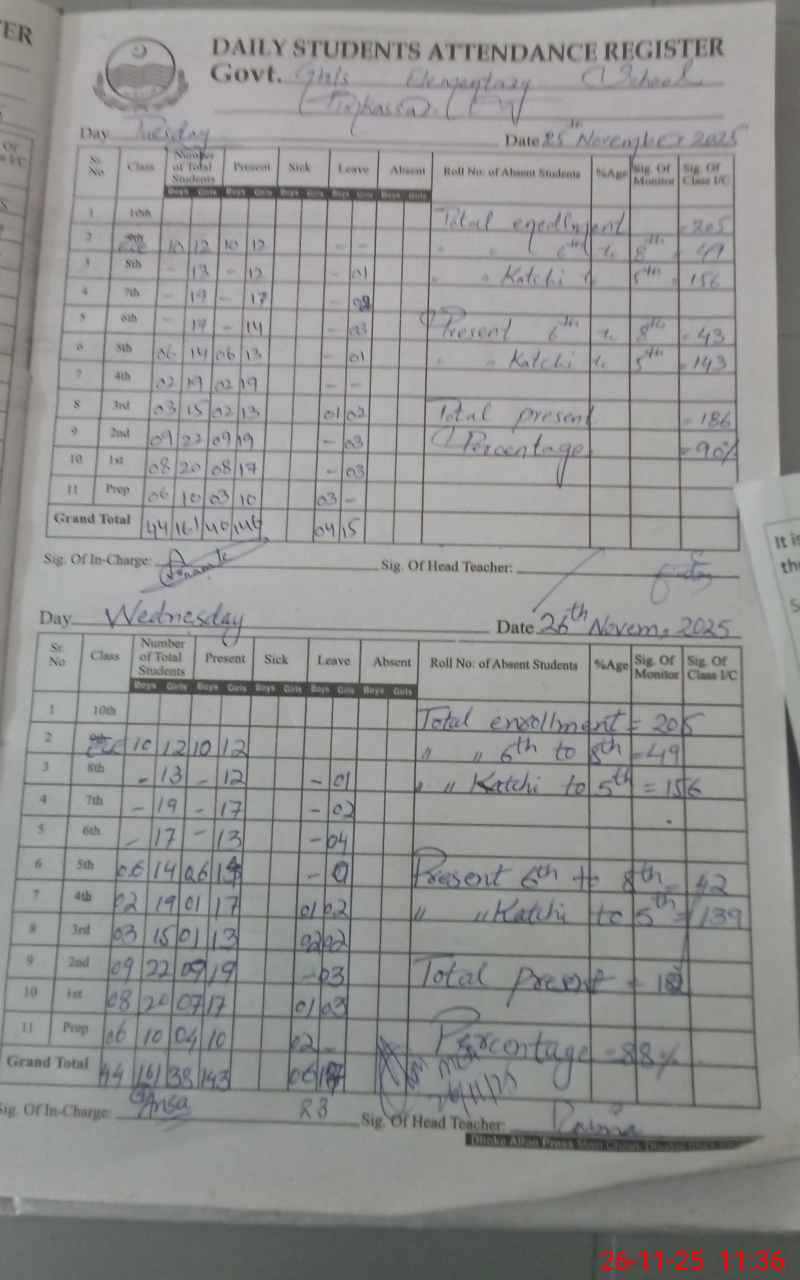 ER
DAILY STUDENTS ATTENDANCE REGISTER
Govt. Girls Elementary School
Day Tuesday Date 25th November 2025
Sr. No Class Number of Total Students Present Sick Leave Absent Roll No: of Absent Students %Age Sig. Of Monitor Sig. Of Class I/C
Boys Girls Boys Girls Boys Girls Boys Girls Boys Girls
1 10th Total enrollment = 205
2 ECE 10 12 10 12 - - " " 6th to 8th = 49
3 8th - 13 - 12 - 01 " " Katchi to 5th = 156
4 7th - 19 - 17 - 02
5 6th - 17 - 14 - 03 Present 6th to 8th = 43
6 5th 06 14 06 13 - 01 " " Katchi to 5th = 143
7 4th 02 19 02 19 - -
8 3rd 03 15 02 13 01 02 Total present = 186
9 2nd 09 22 09 19 - 03 Percentage = 90%
10 1st 08 20 08 17 - 03
11 Prep 06 10 03 10 03 -
Grand Total 44 161 40 146 04 15
Sig. Of In-Charge: Sig. Of Head Teacher:
Day Wednesday Date 26th Novem, 2025
Sr. No Class Number of Total Students Present Sick Leave Absent Roll No: of Absent Students %Age Sig. Of Monitor Sig. Of Class I/C
Boys Girls Boys Girls Boys Girls Boys Girls Boys Girls
1 10th Total enrollment = 205
2 ECE 10 12 10 12 " " 6th to 8th = 49
3 8th - 13 - 12 - 01 " " Katchi to 5th = 156
4 7th - 19 - 17 - 02
5 6th - 17 - 13 - 04
6 5th 06 14 06 14 - 0 Present 6th to 8th = 42
7 4th 02 19 01 17 01 02 " " Katchi to 5th = 139
8 3rd 03 15 01 13 02 02
9 2nd 09 22 09 19 - 03 Total present =
10 1st 08 20 07 17 01 03
11 Prep 06 10 04 10 02 - Percentage = 88%
Grand Total 44 161 38 143 06 26/11/25
Sig. Of In-Charge: Ansa 23 Sig. Of Head Teacher:
It is
26-11-25 11:36